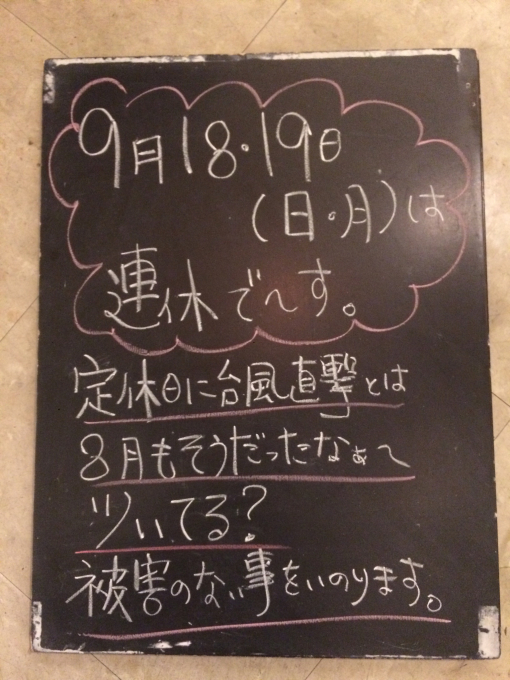 9月18・19日
(日・月)は
連休で〜す。
定休日に台風直撃とは
8月もそうだったなぁ〜
ツいてる?
被害のない事をいのります。